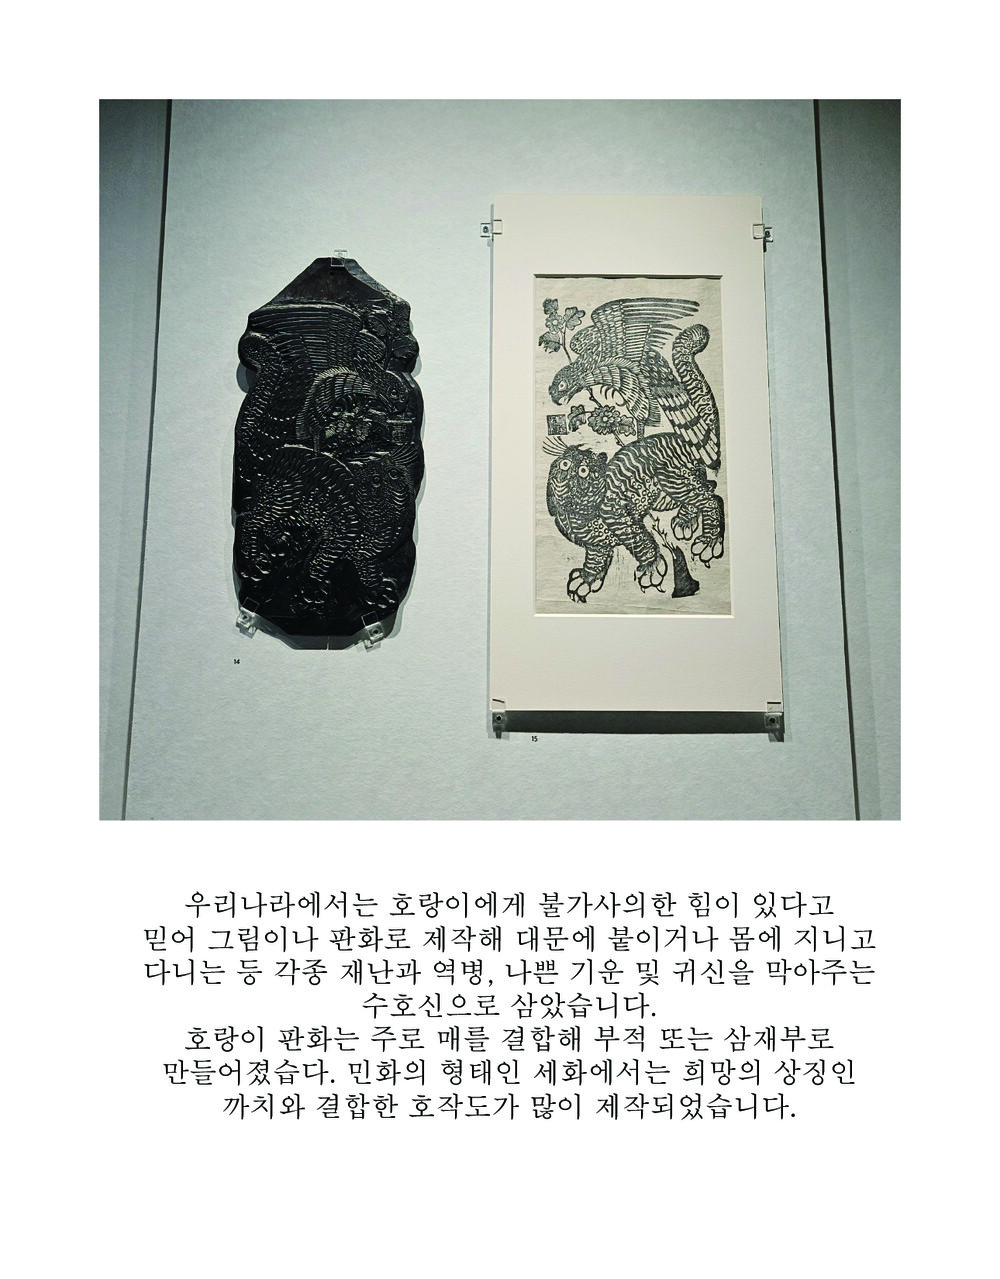 14
15
우리나라에서는 호랑이에게 불가사의한 힘이 있다고
믿어 그림이나 판화로 제작해 대문에 붙이거나 몸에 지니고
다니는 등 각종 재난과 역병, 나쁜 기운 및 귀신을 막아주는
수호신으로 삼았습니다.
호랑이 판화는 주로 매를 결합해 부적 또는 삼재부로
만들어졌습다. 민화의 형태인 세화에서는 희망의 상징인
까치와 결합한 호작도가 많이 제작되었습니다.